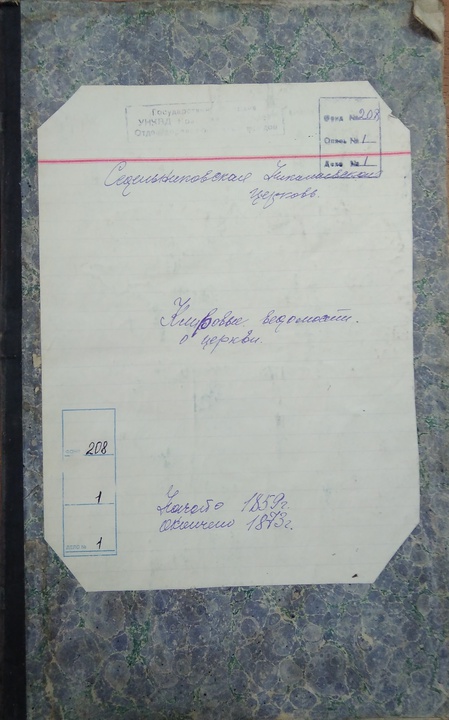 Фонд № 208
Опись № 1
Дело № 1
Седельниковская Николаевская
церковь.
Клировые ведомости.
о церкви.
208
1
1
Начато 1859г.
Окончено 1873г.